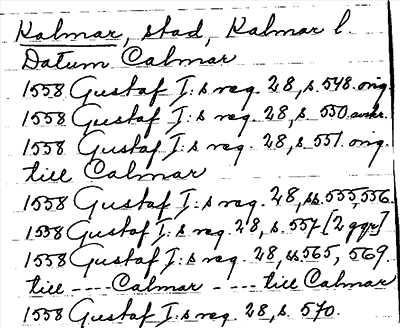 Kalmar, stad, Kalmar l.
Datum Calmar
1558 Gustaf I:s reg. 28, s. 548. orig.
1558 Gustaf I:s reg. 28, s. 550. avskr.
1558 Gustaf I:s reg. 28, s. 551. orig.
till Calmar
1558 Gustaf I:s reg. 28, ss. 555, 556.
1558 Gustaf I:s reg. 28, s. 557 [2 ggr]
1558 Gustaf I:s reg. 28, ss 565, 569.
till ---- Calmar - --- till Calmar
1558 Gustaf I:s reg. 28, s. 570.